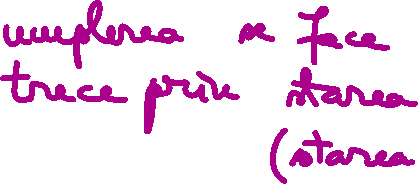 umplerea se face
trece prin starea
(starea